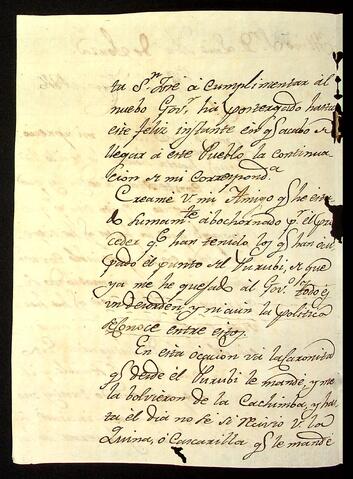 ta Sn. José á cumplimentar al
nuebo Govr. ha postergado hasta
este feliz instante en qe. acabo de
llegar á este Pueblo, la continua
cion de mi correspond.a
Creame V. mi Amigo qe. he esta
do sumamte. abochornado pr. el pro
ceder qe. han tenido los qe. han ocu
pado el punto del Yurubi, de que
ya me he quejado al Govr. todo es
un desorden, y ni aun la politica
se conoce entre estos.
En esta ocacion va la
qe. desde el Yurubi le mandé, y me
la bolvieron de la Cachimba, y has
ta el dia no se si recivio V. la
Quina, ó Cascarilla qe. le mandé